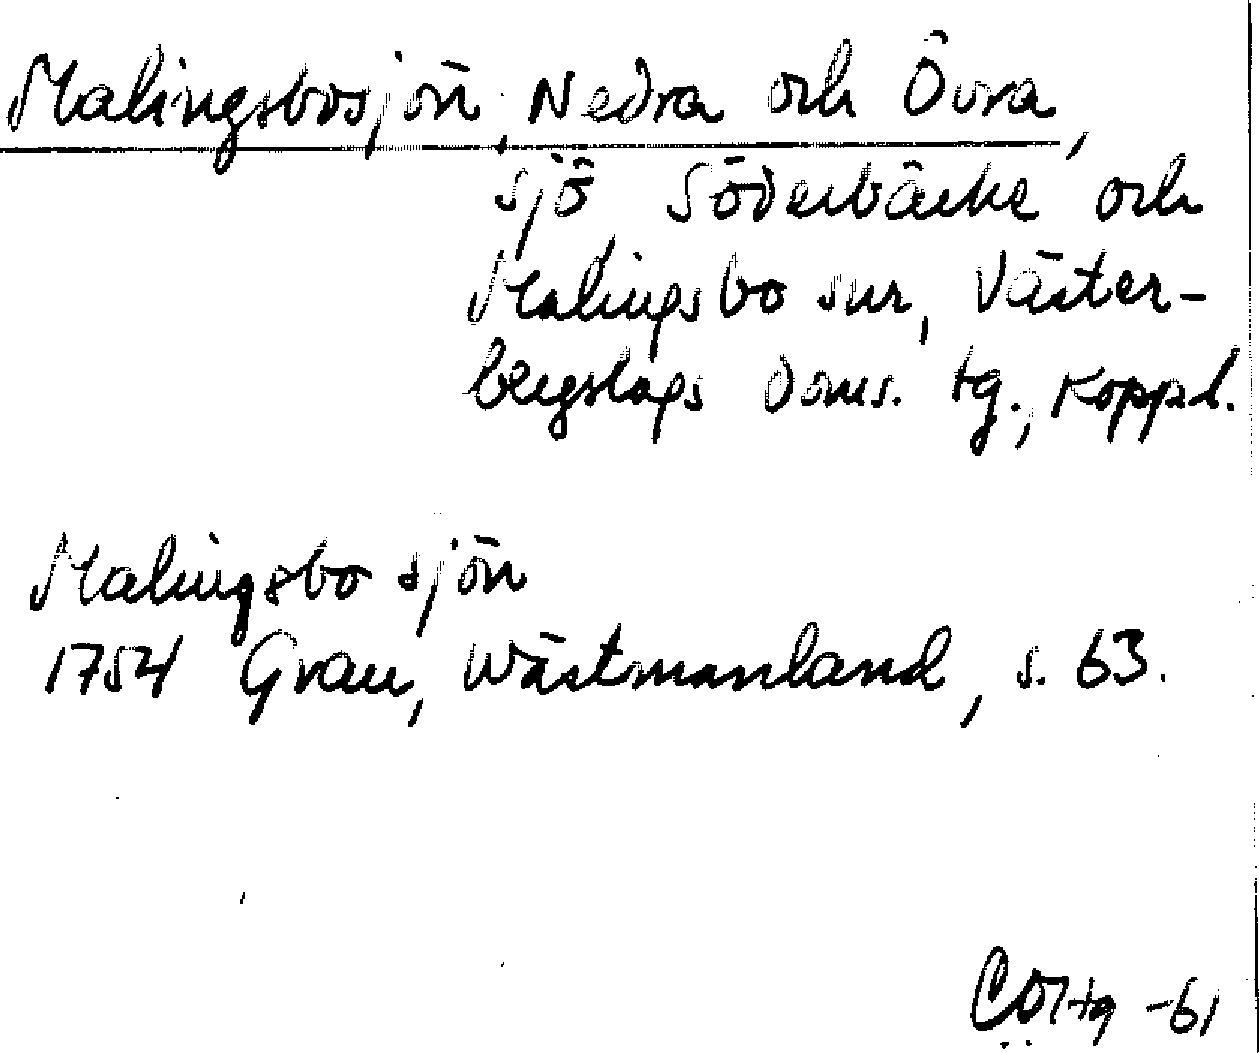 Malingsbosjön, Nedra och Övra,
sjö Söderbärke och
Malingsbo snr, Väster-
bergslags doms. tg., Koppb.
Malingsbo sjön
1754 Grau, Wästmanland, s. 63.
-61